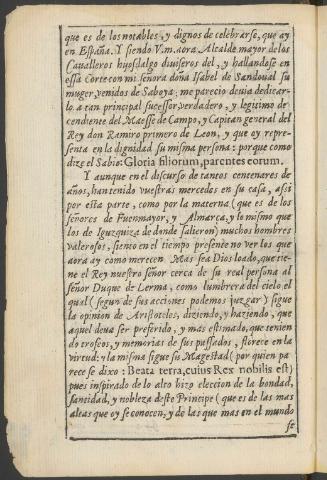 que es de los notables, y dignos de celebrarse, que ay
en España. Y siendo V.m. aora Alcalde mayor de los
Caualleros hijosdalgo diuiseros del, y hallandose en
essa Corte con mi señora doña Isabel de Sandoual su
muger, venidos de Saboya: me parecio deuia dedicar-
lo a tan principal sucessor, verdadero, y legitimo de-
cendiente del Maesse de Campo, y Capitan general del
Rey don Ramiro primero de Leon, y que oy repre-
senta en la dignidad su misma persona: porque como
dize el Sabio: Gloria filiorum, parentes eorum.
Y aunque en el discurso de tantos centenares de
años, han tenido vuestras mercedes en su casa, assi
por esta parte, como por la materna (que es de los
señores de Fuenmayor, y Almarça, y lo mismo que
los de Iguzquiza de donde salieron) muchos hombres
valerosos, siento en el tiempo presente no ver los que
aora ay como merecen. Mas sea Dios loado, que tie-
ne el Rey nuestro señor cerca de su real persona al
señor Duque de Lerma, como lumbrera del cielo el
qual (segun de sus acciones podemos juzgar) sigue
la opinion de Aristoteles, diziendo, y haziendo, que
aquel deua ser preferido, y mas estimado, que tenien
do trofeos, y memorias de sus passados, florece en la
virtud: y la misma sigue su Magestad (por quien pa
rece se dixo: Beata terra, cuius Rex nobilis est)
pues inspirado de lo alto hizo eleccion de la bondad,
santidad, y nobleza deste Principe (que es de las mas
aleas que oy se conocen, y de las que mas en el mundo
se